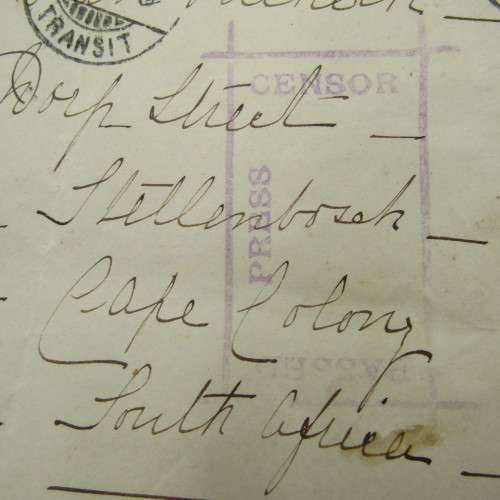 TRANSIT
CENSOR
Dorp Street –
PRESS
Stellenbosch –
Cape Colony
South Africa –